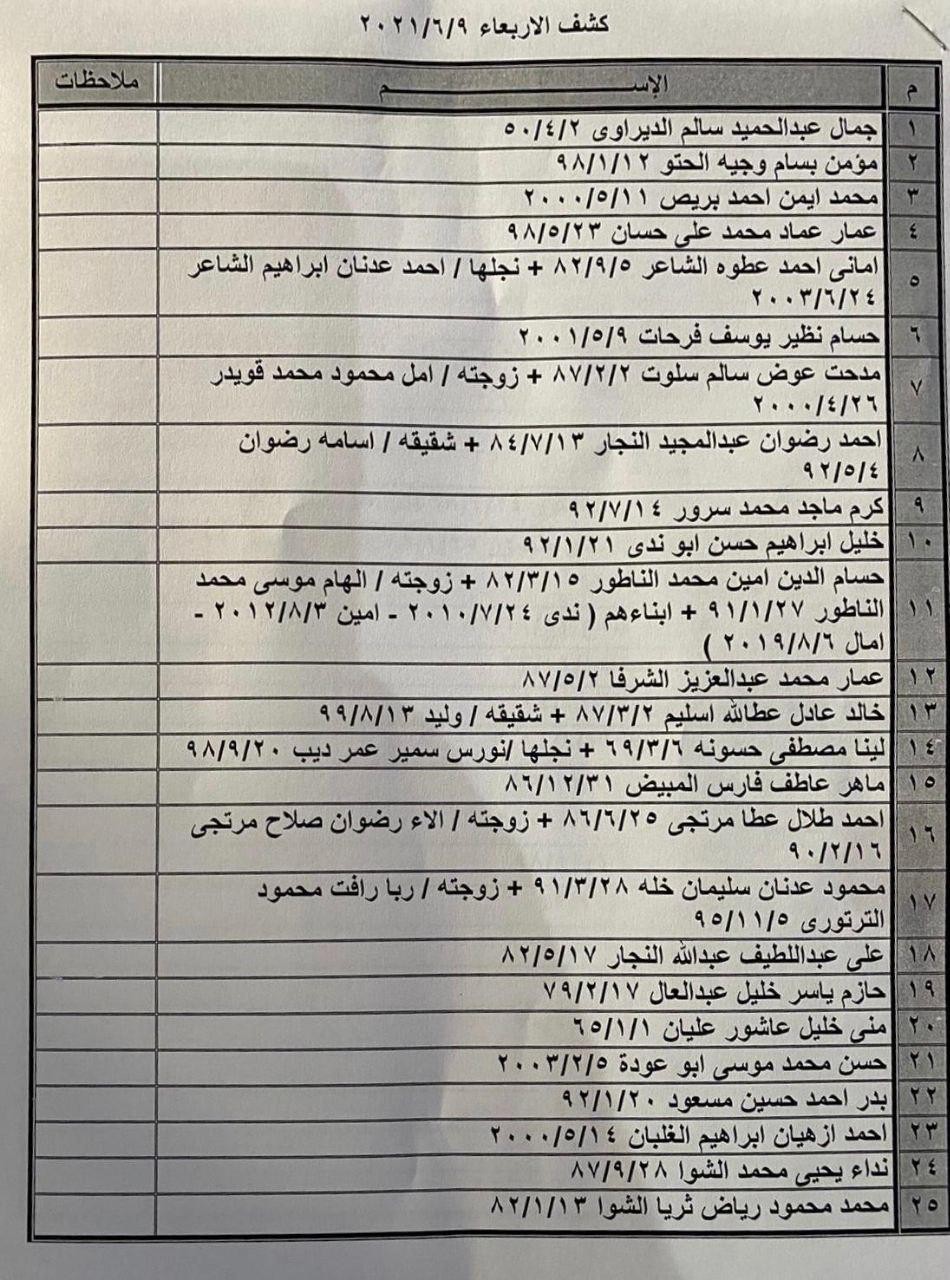 كشف الاربعاء ٢٠٢١/٦/٩
م الإســــــــــم ملاحظات
١ جمال عبدالحميد سالم الديراوى ٥٠/٤/٢
٢ مؤمن بسام وجيه الحتو ٩٨/١/١٢
٣ محمد ايمن احمد بريص ٢٠٠٠/٥/١١
٤ عمار عماد محمد على حسان ٩٨/٥/٢٣
٥ امانى احمد عطوه الشاعر ٨٢/٩/٥ + نجلها / احمد عدنان ابراهيم الشاعر
٢٠٠٣/٦/٢٤
٦ حسام نظير يوسف فرحات ٢٠٠١/٥/٩
٧ مدحت عوض سالم سلوت ٨٧/٢/٢ + زوجته / امل محمود محمد قويدر
٢٠٠٠/٤/٢٦
٨ احمد رضوان عبدالمجيد النجار ٨٤/٧/١٣ + شقيقه / اسامه رضوان
٩٢/٥/٤
٩ كرم ماجد محمد سرور ٩٢/٧/١٤
١٠ خليل ابراهيم حسن ابو ندى ٩٢/١/٢١
١١ حسام الدين امين محمد الناطور ٨٢/٣/١٥ + زوجته / الهام موسى محمد
الناطور ٩١/١/٢٧ + ابناءهم ( ندى ٢٠١٠/٧/٢٤ - امين ٢٠١٢/٨/٣ -
امال ٢٠١٩/٨/٦ )
١٢ عمار محمد عبدالعزيز الشرفا ٨٧/٥/٢
١٣ خالد عادل عطالله اسليم ٨٧/٣/٢ + شقيقه / وليد ٩٩/٨/١٣
١٤ لينا مصطفى حسونه ٦٩/٣/٦ + نجلها /نورس سمير عمر ديب ٩٨/٩/٢٠
١٥ ماهر عاطف فارس المبيض ٨٦/١٢/٣١
١٦ احمد طلال عطا مرتجى ٨٦/٦/٢٥ + زوجته / الاء رضوان صلاح مرتجى
٩٠/٢/١٦
١٧ محمود عدنان سليمان خله ٩١/٣/٢٨ + زوجته / ربا رافت محمود
الترتورى ٩٥/١١/٥
١٨ على عبداللطيف عبدالله النجار ٨٢/٥/١٧
١٩ حازم ياسر خليل عبدالعال ٧٩/٢/١٧
٢٠ منى خليل عاشور عليان ٦٥/١/١
٢١ حسن محمد موسى ابو عودة ٢٠٠٣/٢/٥
٢٢ بدر احمد حسين مسعود ٩٢/١/٢٠
٢٣ احمد ازهيان ابراهيم الغلبان ٢٠٠٠/٥/١٤
٢٤ نداء يحيى محمد الشوا ٨٧/٩/٢٨
٢٥ محمد محمود رياض ثريا الشوا ٨٢/١/١٣